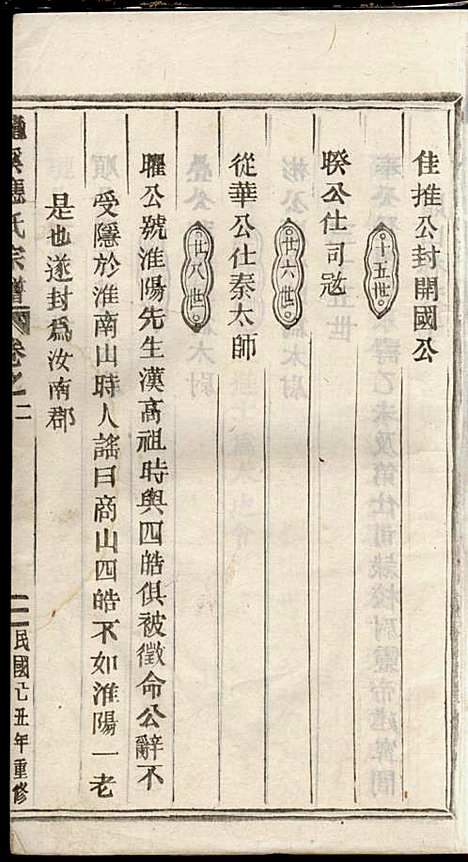 佳推公封開國公
十五世
睽公仕司寇
廿六世
從華公仕秦太師
廿八世
曜公號淮陽先生漢高祖時與四皓俱被徵命公辭不
受隱於淮南山時人謠曰商山四皓不如淮陽一老
是也遂封爲汝南郡
溪應氏宗譜 卷之二 民國己丑年重修